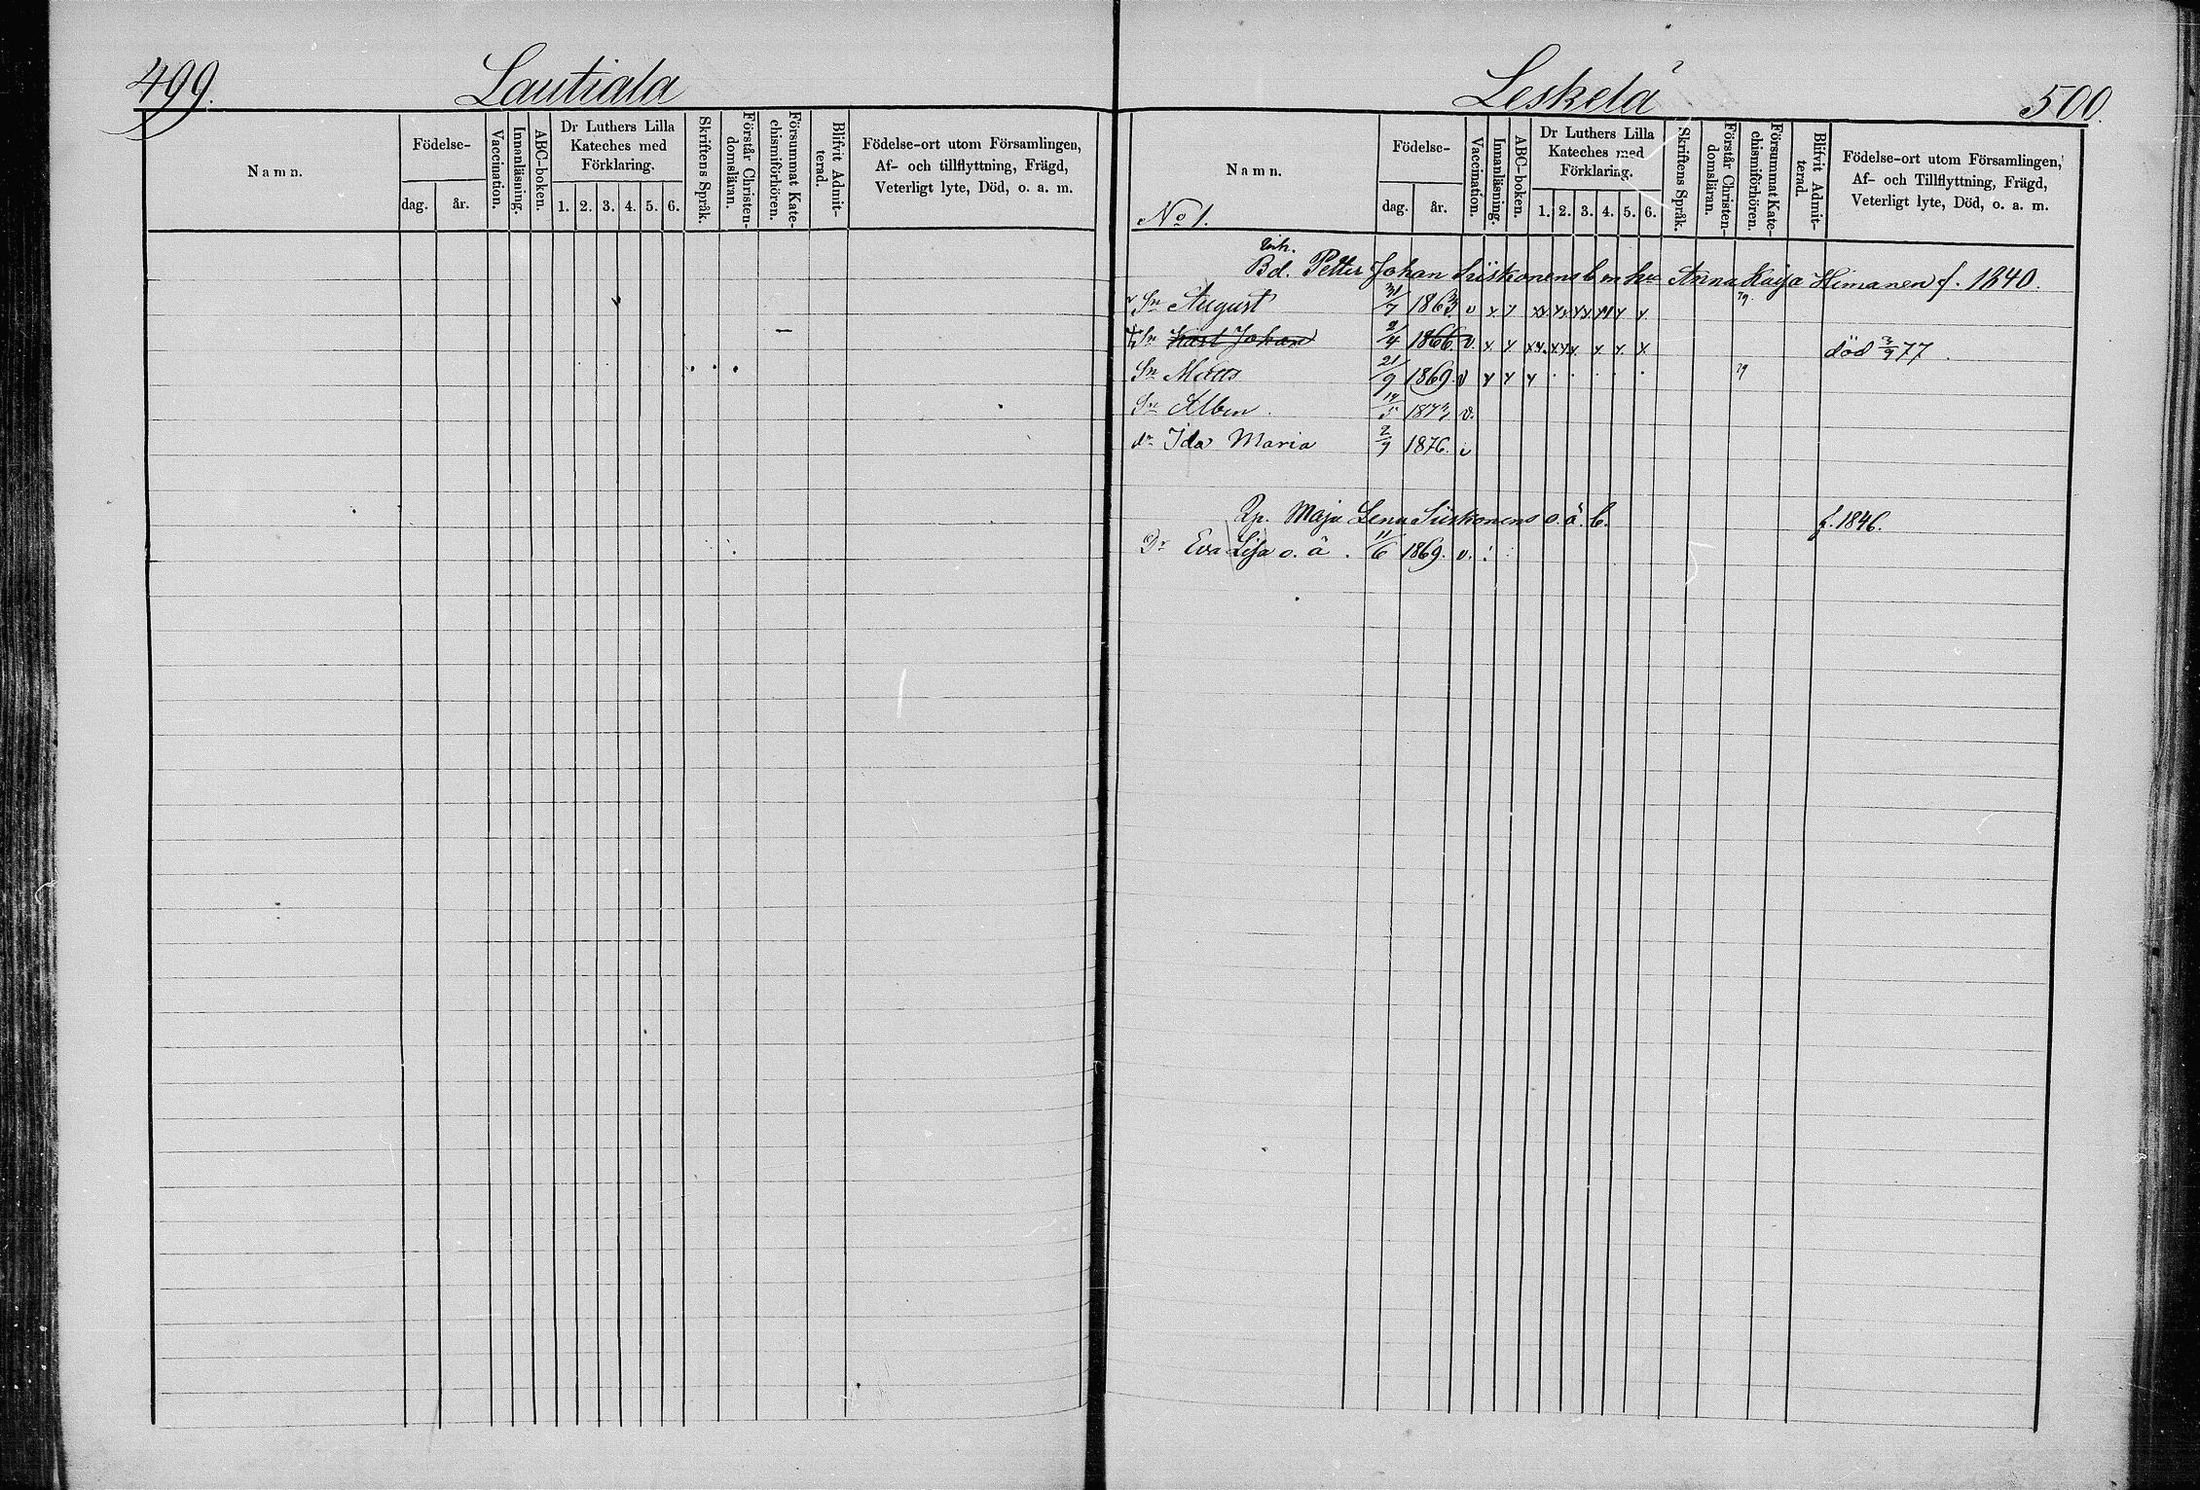 499.
Lautiala
Namn.
Födelse-
dag.
år.
Vaccination.
Innanläsning.
ABC-boken.
Dr Luthers Lilla
Kateches med
Förklaring.
1. 2. 3. 4. 5. 6.
Skriftens Språk.
Förstår Christen-
domsläran.
Försummat Kate-
chismiförhören.
Blifvit Admit-
terad.
Födelse-ort utom Församlingen,
Af- och tillflyttning, Frägd,
Veterligt lyte, Död, o. a. m.
Leskelä
500.
Namn.
No 1.
Födelse-
dag.
år.
Vaccination.
Innanläsning.
ABC-boken.
Dr Luthers Lilla
Kateches med
Förklaring.
1. 2. 3. 4. 5. 6.
Skriftens Språk.
Förstår Christen-
domsläran.
Försummat Kate-
chismiförhören.
Blifvit Admit-
terad.
Födelse-ort utom Församlingen,
Af- och Tillflyttning, Frägd,
Veterligt lyte, Död, o. a. m.
Enk.
Bd. Petter Johan Siiskonens b m h Anna Kaija Himanen f. 1840.
Sn August 31/7 1863. v x x xx xx xx xx x x 79.
Sn Karl Johan 2/4 1866. v. x x xx. xx x x x x död 3/9 77.
Sn Matts 21/9 1869. v x x x 79
Sn Alben. 14/5 1873 v.
dr Ida Maria 2/9 1876. v
Maja Lena Siiskonens o. ä. b. f. 1846.
Dr Eva Lisa o. ä. 11/6 1869. v.